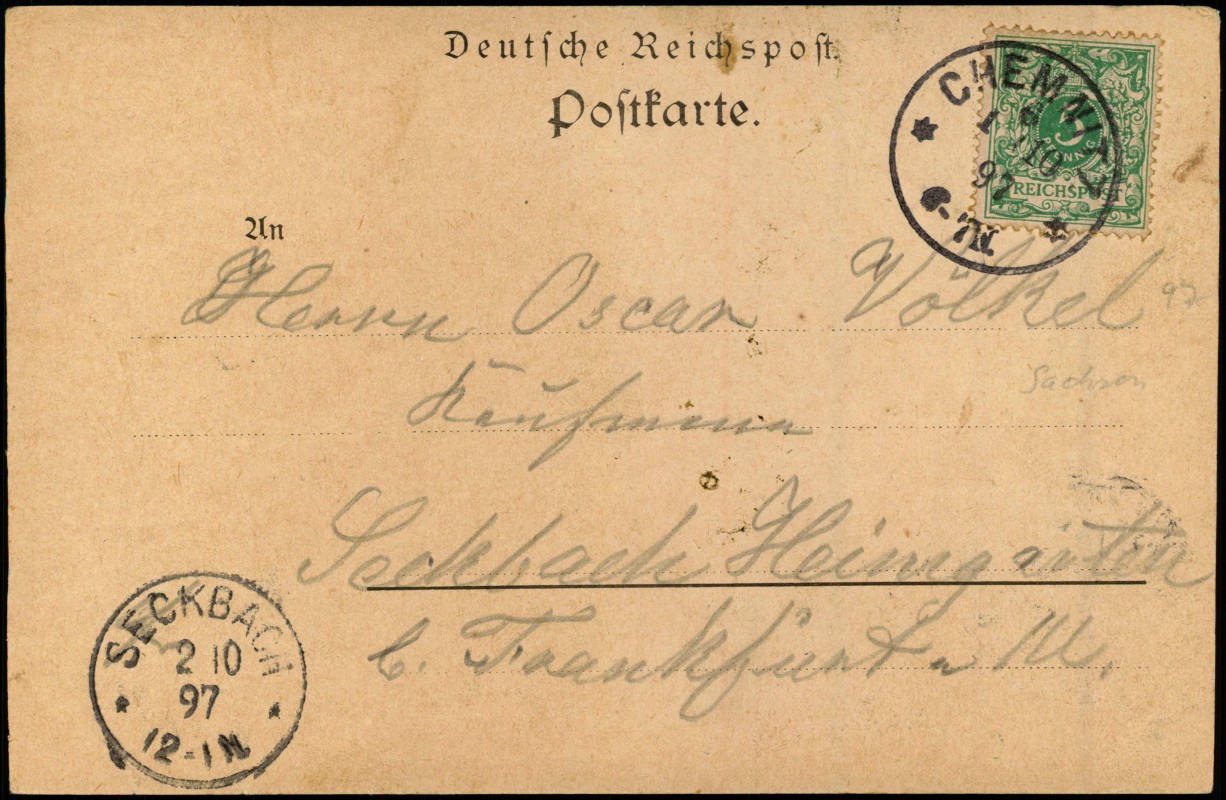 Deutsche Reichspost.
Postkarte.
CHEMNITZ
1 10
97
6-7N
5
PFENNIG
REICHSPOST
An
Herrn Oscar Völkel
97
Sachsen
Kaufmann
Seckbach Heimgarten
b. Frankfurt a M.
SECKBACH
2 10
97
12-1N